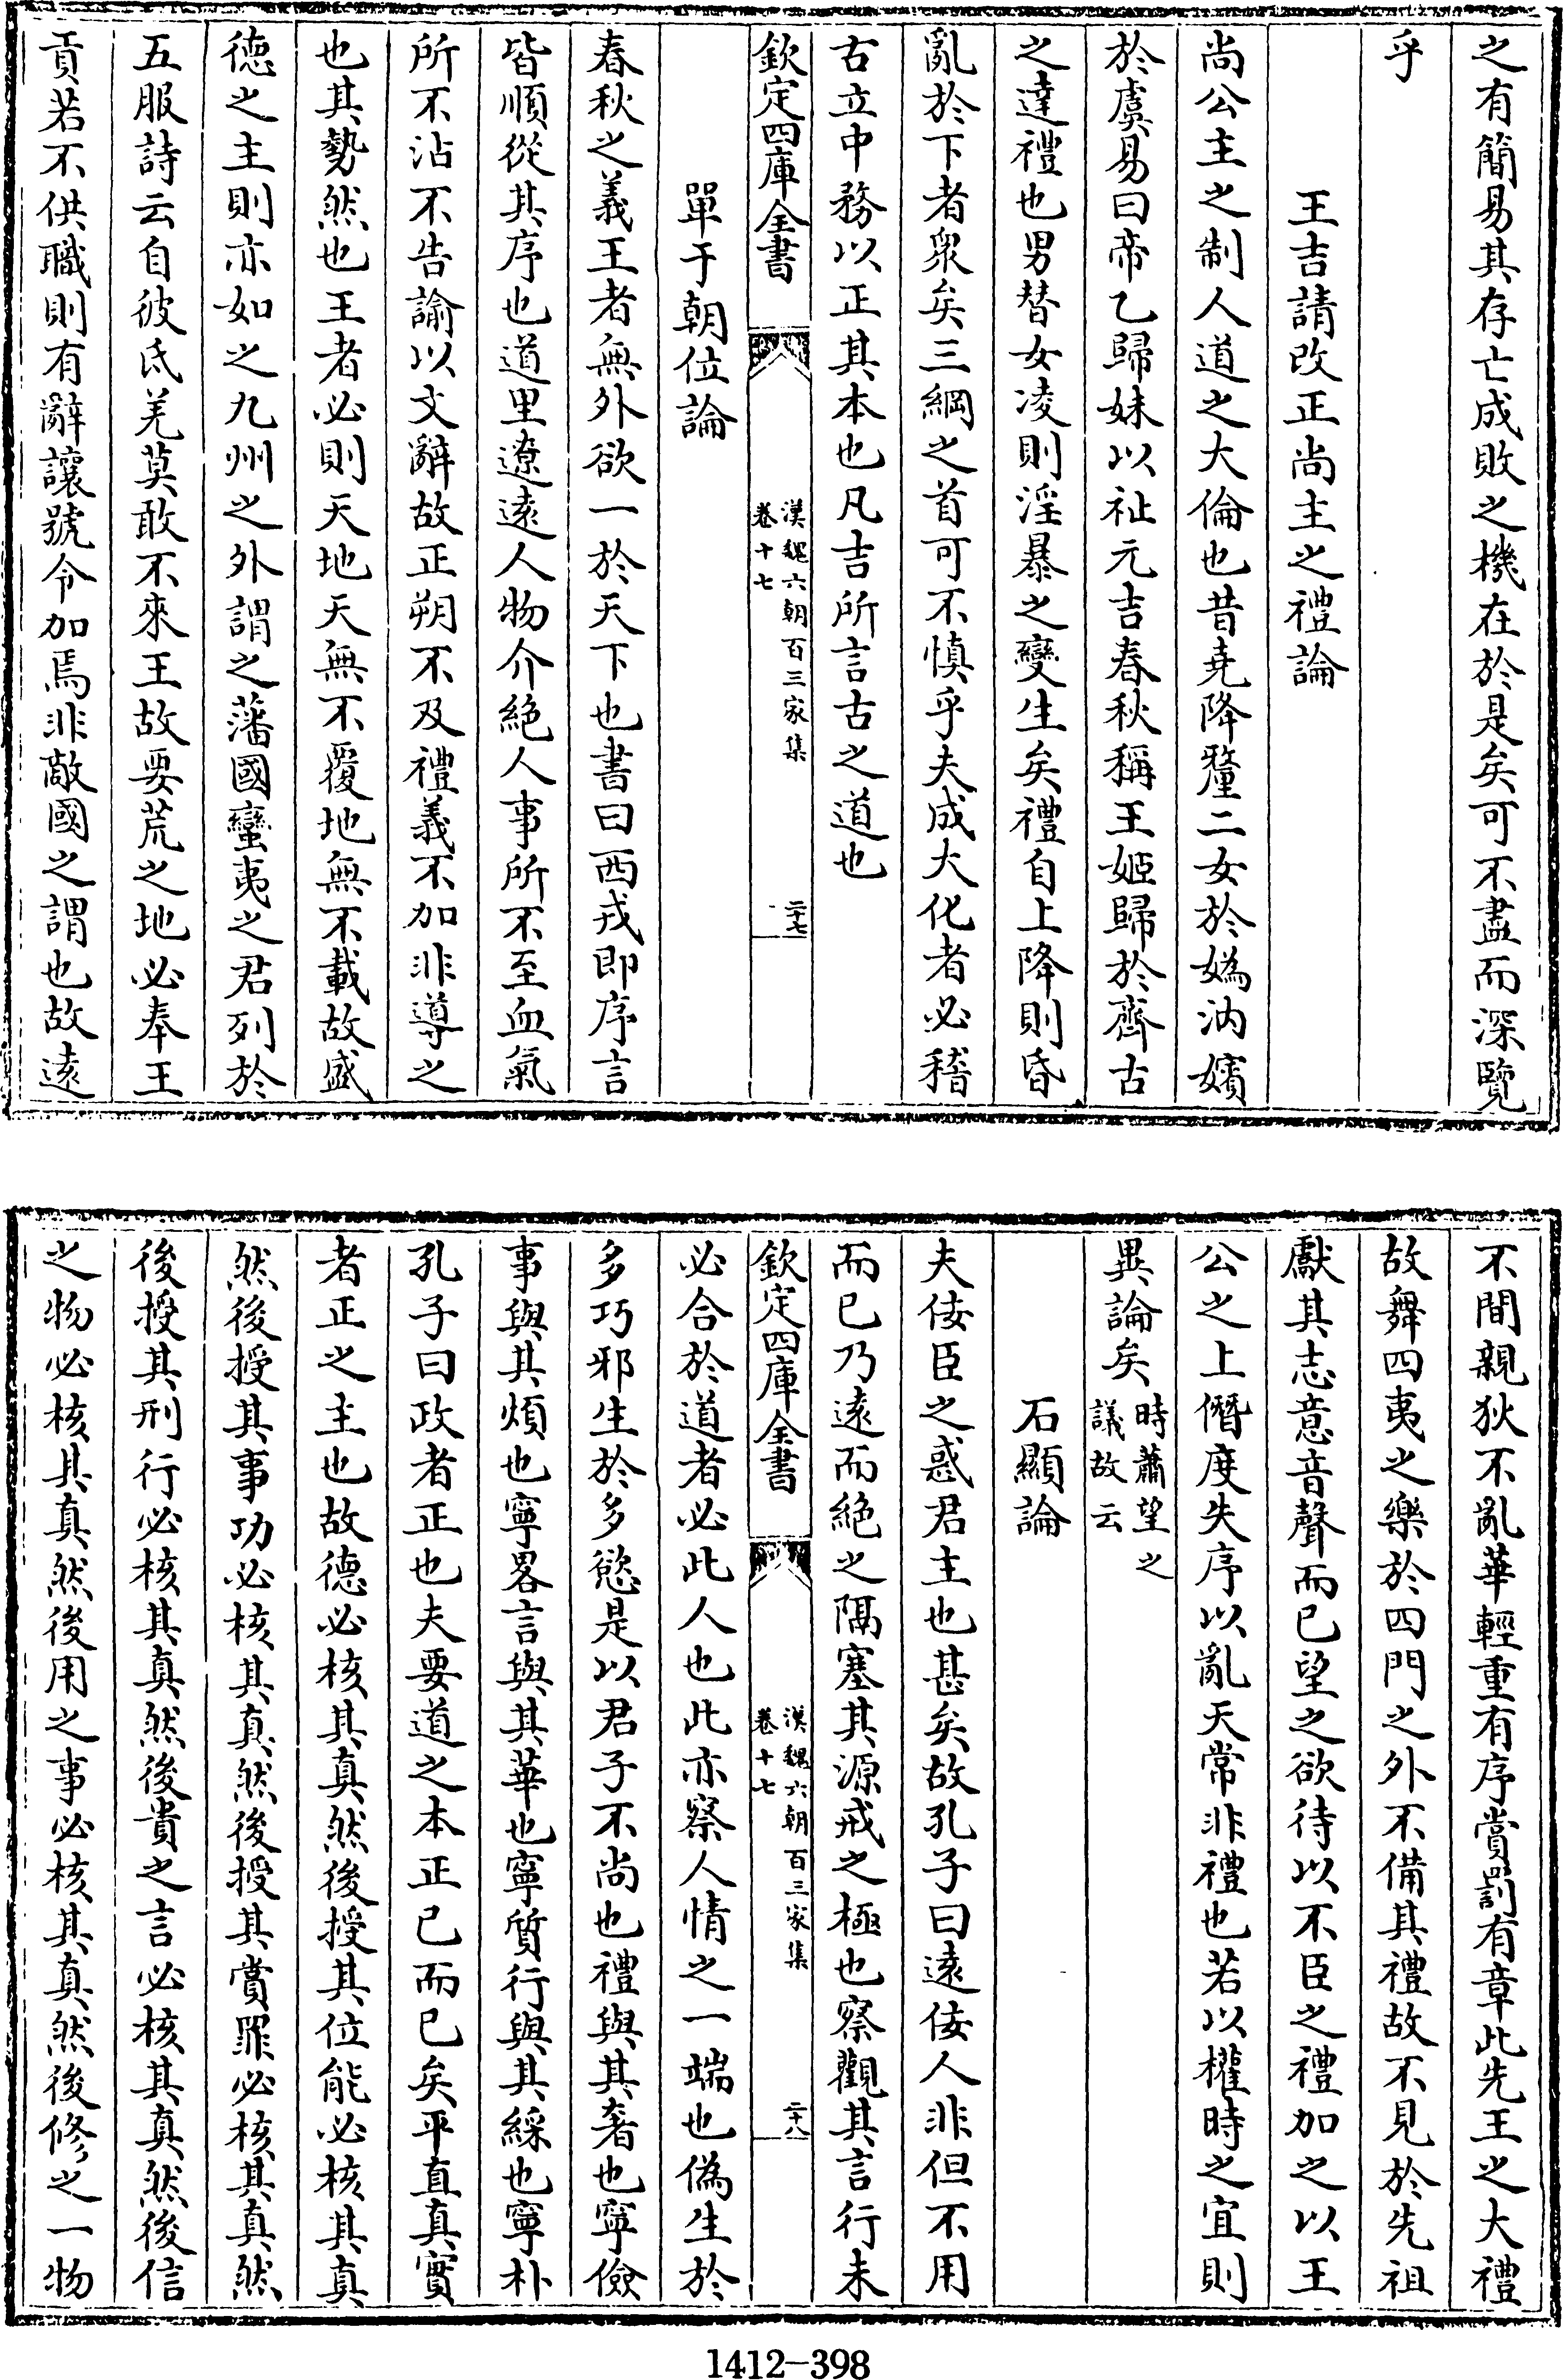 之有簡易其存亡成敗之機在於是矣可不盡而深覽
乎
王吉請改正尚主之禮論
尚公主之制人道之大倫也昔堯降釐二女於嬀汭嬪
於虞易曰帝乙歸妹以祉元吉春秋稱王姬歸於齊古
之達禮也男替女凌則淫暴之變生矣禮自上降則昏
亂於下者衆矣三綱之首可不慎乎夫成大化者必稽
古立中務以正其本也凡吉所言古之道也
欽定四庫全書
漢魏六朝百三家集
卷十七
二十七
單于朝位論
春秋之義王者無外欲一於天下也書曰西戎即序言
皆順從其序也道里遼遠人物介絶人事所不至血氣
所不沾不告諭以文辭故正朔不及禮義不加非導之
也其勢然也王者必則天地天無不覆地無不載故盛
德之主則亦如之九州之外謂之藩國蠻夷之君列於
五服詩云自彼氐羌莫敢不來王故要荒之地必奉王
貢若不供職則有辭讓號令加焉非敵國之謂也故遠
不間親狄不亂華輕重有序賞罰有章此先王之大禮
故舞四夷之樂於四門之外不備其禮故不見於先祖
獻其志意音聲而已望之欲待以不臣之禮加之以王
公之上僭度失序以亂天常非禮也若以權時之宜則
異論矣時蕭望之
議故云
石顯論
夫佞臣之惑君主也甚矣故孔子曰遠佞人非但不用
而已乃遠而絶之隔塞其源戒之極也察觀其言行未
欽定四庫全書
漢魏六朝百三家集
卷十七
二十八
必合於道者必此人也此亦察人情之一端也偽生於
多巧邪生於多慾是以君子不尚也禮與其奢也寧儉
事與其煩也寧畧言與其華也寧質行與其綵也寧朴
孔子曰政者正也夫要道之本正已而已矣平直真實
者正之主也故德必核其真然後授其位能必核其真
然後授其事功必核其真然後授其賞罪必核其真然
後授其刑行必核其真然後貴之言必核其真然後信
之物必核其真然後用之事必核其真然後修之一物
1412-398